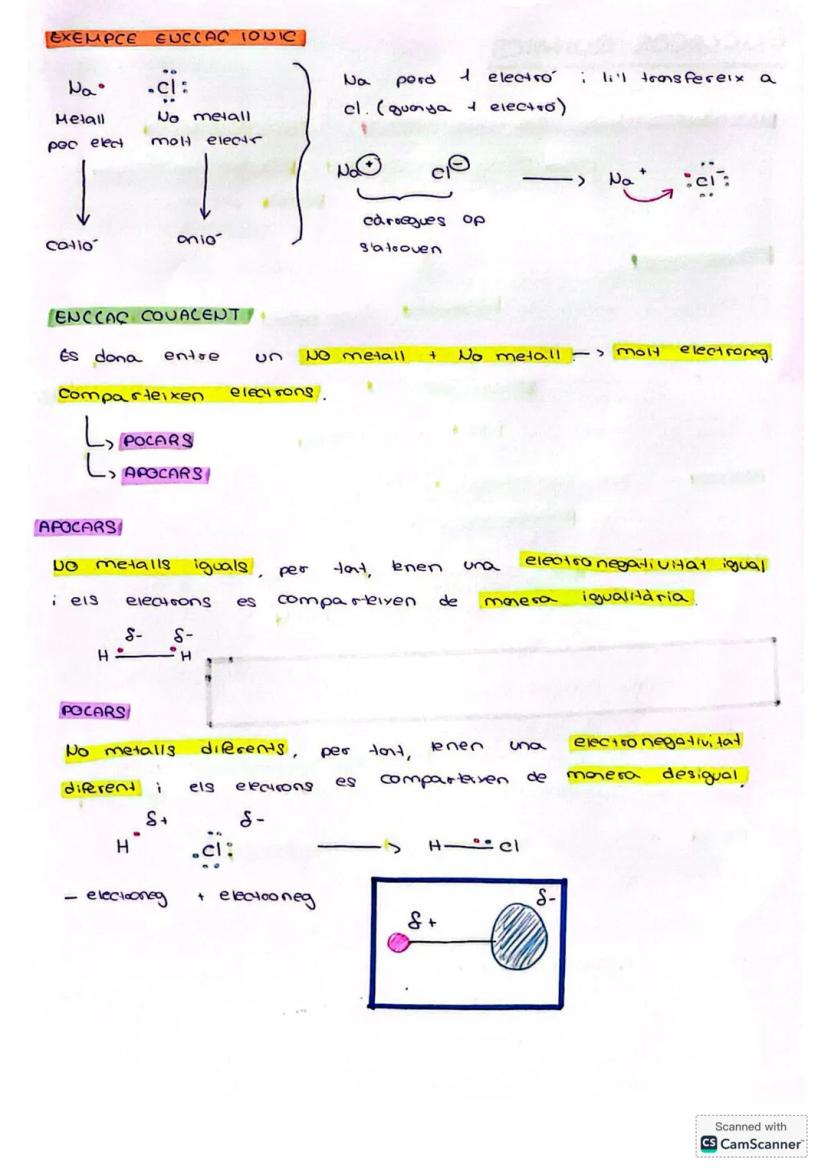 EXEMPLE ENLLAÇ IONIC
Na• .Cl:
Na perd 1 electró i li'l transfereix a
cl. (guanya 1 electró)
Metall No metall
poc elect molt electr
Na⊕ Cl⊖ → Na⁺ :Cl⁻:
càrregues op
s'atrauen
catió anió
ENLLAÇ COVALENT
Es dona entre un NO metall + No metall → molt electroneg.
comparteixen electrons.
↳ POLARS
↳ APOLARS
APOLARS
NO metalls iguals, per tant, tenen una electronegativitat igual
i els electrons es comparteixen de manera igualitària.
δ- δ-
H H
POLARS
No metalls diferents, per tant, tenen una electronegativitat
diferent i els electrons es comparteixen de manera desigual.
δ+ δ-
H• .Cl: → H—••Cl
- electroneg + electroneg
δ+ δ-
Scanned with
CS CamScanner